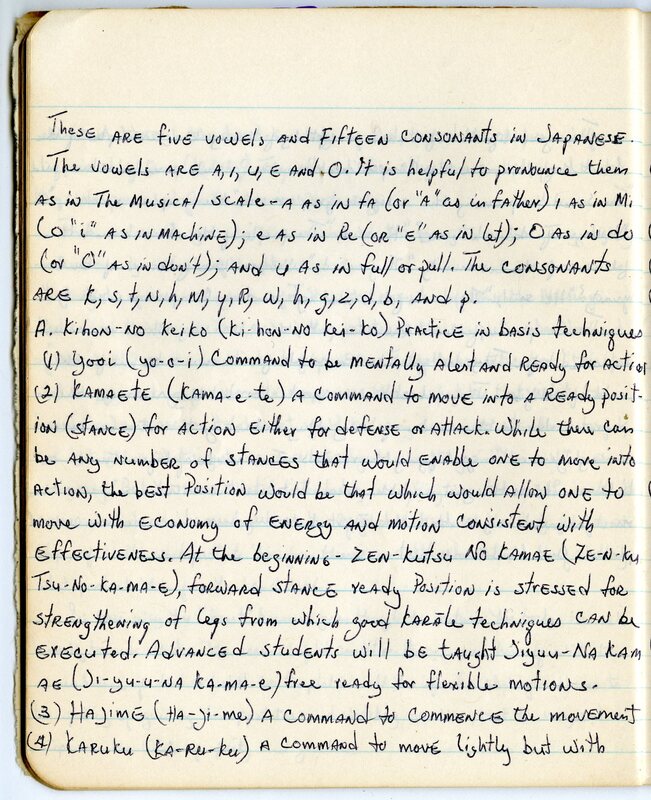 These are five vowels and Fifteen consonants in Japanese.
The vowels are A, I, U, E and O. It is helpful to pronounce them
as in The Musical scale - A as in fa (or "A" as in father) I as in Mi
(o "i" as in machine); e as in Re (or "E" as in let); O as in do
(or "O" as in don't); and u as in full or pull. The consonants
are k, s, t, n, h, m, y, R, w, h, g, z, d, b, and p.
A. Kihon-no Keiko (ki-hon-no kei-ko) Practice in basis techniques
(1) Yooi (yo-o-i) Command to be mentally Alert and Ready for Action
(2) Kamaete (Kama-e-te) A command to move into a Ready posit-
ion (stance) for action either for defense or attack. While there can
be any number of stances that would enable one to move into
action, the best Position would be that which would allow one to
move with economy of energy and motion consistent with
effectiveness. At the beginning - Zen-Kutsu No Kamae (Ze-n-ku
Tsu-No-Ka-ma-e), forward stance ready Position is stressed for
strengthening of legs from which good Karate techniques can be
executed. Advanced students will be taught Jiyuu-Na Kam
ae (Ji-yu-u-na Ka-ma-e) free ready for flexible motions.
(3) Hajime (Ha-ji-me) A command to commence the movement
(4) Karuku (Ka-Ru-ku) A command to move lightly but with